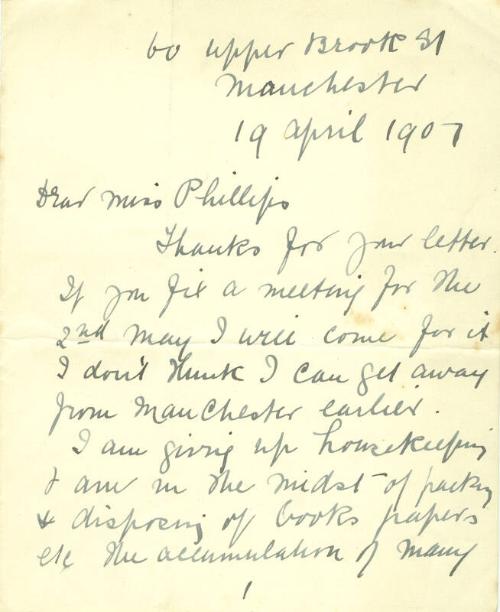 60 Upper Brook St
Manchester
19 April 1907
Dear Miss Phillips
Thanks for your letter.
If you fix a meeting for the
2nd May I will come for it
I don't think I can get away
from Manchester earlier.
I am giving up housekeeping
& am in the midst of packing
& disposing of books papers
etc the accumulation of many
1